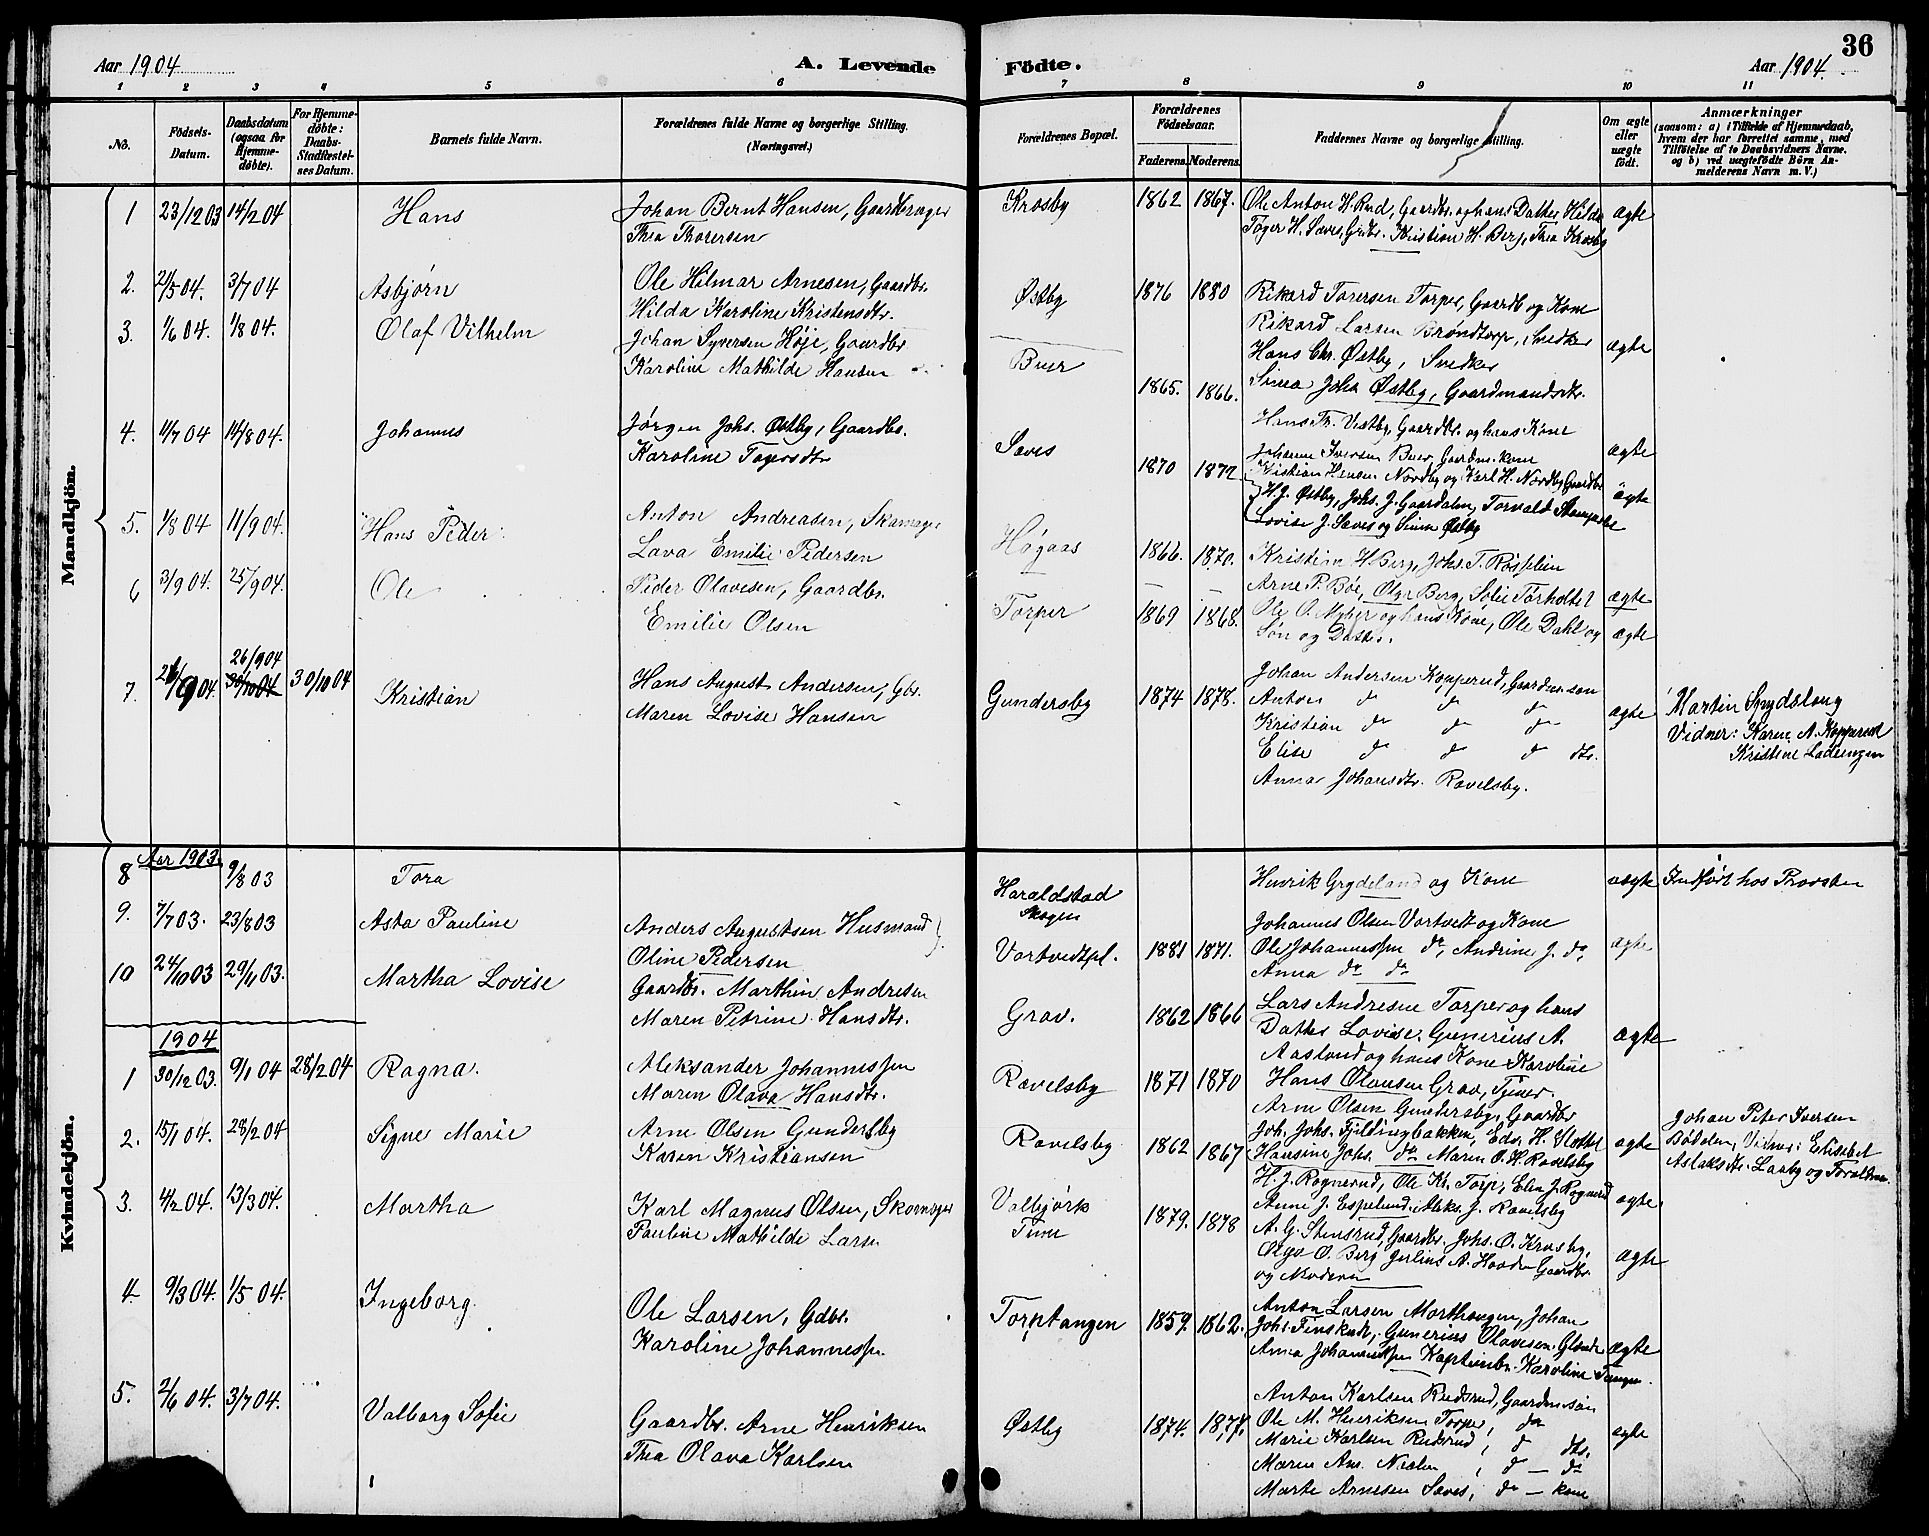 36
Aar 1904
A. Levende Födte.
Aar 1904.
1 2 3 4 5 6 7 8 9 10 11
No.
Födsels-Datum.
Daabsdatum (ogsaa for Hjemme-döbte).
For Hjemme-döbte: Daabs-Stadfæstel-ses Datum.
Barnets fulde Navn.
Forældrenes fulde Navne og borgerlige Stilling. (Næringsvei.)
Forældrenes Bopæl.
Forældrenes Födselsaar.
Faderens. Moderens.
Faddernes Navne og borgerlige Stilling.
Om ægte eller uægte født.
Anmærkninger
(saasom: a) i Tilfælde af Hjemmedaab,
hvem der har forrettet samme, med
Tilföielse af to Daabsvidners Navne.
og b) ved uægtefödte Börn An-
melderens Navn m. V.)
Mandkjön.
1 23/12 03 14/2 04 Hans Johan Bernt Hansen, Gaardbruger Krosby 1862 1867. Ole Anton H. Rud, Gaardbr. og hans Datter Hilda ægte
Thea Thoresen Tøger H. Saves, Grdbr. Kristian H. Berg, Thea Krosby
2. 2/5 04. 3/7 04 Asbjörn Ole Hilmar Arnesen, Gaardbr. Østby 1876 1880 Rikard Toresen Torper, Gaardb og Kone
Hilda Karoline Kristensdtr. Rikard Larsen Bröndtorp, Snedker
3. 1/6 04. 1/8 04. Olaf Vilhelm Johan Syversen Høje, Gaardbr Buer 1865. 1866. Hans Chr. Østby, Snedker ægte
Karoline Mathilde Hansen Sina Joha Østby, Gaardmandsdtr.
4. 11/7 04 14/8 04. Johannes Jørgen Johs. Østby, Gaardbr. Saves 1870 1872 Hans Th. Vestby, Gaardbr. og hans Kone ægte
Karoline Tøgersdtr Johanne Iversen Buer Gaardm. kone
Kristian Hansen Nordby og Karl H. Nordby Gaardbr
H. J. Østby, Johs. J. Gaardalen, Torvald ægte
Lovise J. Saves og Sina Østby
5. 1/8 04 11/9 04. Hans Peder Anton Andreasen, Skomager Høgaas 1866. 1870. Kristian H. Berg, Johs. T.
Lava Emilie Pedersen Arne P. Bøe, Olga Berg, Sofie ægte
6 3/9 04. 25/9 04. Ole Peder Olavesen, Gaardbr. Torper 1869 1868. Ole O. Myhrer og hans Kone, Ole Dahl og ægte
Emilie Olsen Søn og Datter.
7. 26/9 04. 26/9 04 30/10 04 30/10 04 Kristian Hans August Andersen, Gbr. Gundersby 1874 1878. Johan Andersen Kopperud, Gaardm. søn ægte Martin Snydsloug
Maren Lovise Hansen Anton do do do Vidner: Karen A. Kopperud
Kristian do do do Kristine Ladsengen
Elise do do do dtr.
Anna Johansdtr. Ravelsby.
Kvindekjön.
Aar 1903
8 9/8 03 Tora Haraldstad Skogen Henrik Grydeland og Kone uægte Indført hos Provsten
9. 7/7 03. 23/8 03 Asta Pauline Anders Augustsen Husmand Vortvedtpl. 1881 1871. Johannes Olsen Vortvedt og Kone ægte
Oline Pedersen Ole Johannessen do, Andrine J. do,
Anna do do
10 24/10 03 29/11 03. Martha Lovise Gaardbr. Marthin Andresen Grav. 1862 1866 Lars Andresen Torper og hans ægte
Maren Petrine Hansdtr. Datter Lovise. Gunerius A.
Aaslund og hans Kone Karoline
1904
1 30/12 03. 9/1 04 28/2 04 Ragna. Aleksander Johannessen Ravelsby 1871 1870 Hans Olausen Grav, Tjener.
Maren Olava Hansdtr. Arne Olsen Gundersby, Gaardbr Johan Peter Iversen
2. 15/1 04. 28/2 04 Signe Marie Arne Olsen Gundersby Ravelsby 1862 1867 Joh. Johs. Fjeldringbakken, Edv. H. Slottet ægte Bødelen, Vidner: Elisabet
Karen Kristiansen Hansine Johs. do Maren O. H. Ravelsby Aslaksdtr. Laaby og Foreldrene
3. 4/2 04. 13/3 04. Martha Karl Magnus Olsen, Skomager Valbjörk Tune 1879. 1878 H. J. Rognerud, Ole Kr. Torp, Elen J. Rognerud ægte.
Pauline Mathilde Larsen Anne J. Espelund. Aleks. J. Ravelsby
A. G. Stensrud, Gaardbr. Johs. O. Krosby,
Olga O. Berg Julius A. Gaardbr. ægte
og Moderen
4. 9/3 04. 1/5 04. Ingeborg. Ole Larsen, Gdbr. Torptangen 1859. 1862. Anton Larsen Morthaugen, Johan
Karoline Johannessen Johs. Gunerius Olavesen ægte
Anna Johannessen Karoline Tangen.
5. 2/6 04. 3/7 04. Valborg Sofie Gaardbr. Arne Henriksen Østby 1874. 1877. Anton Karlsen Rudsrud, Gaardm. søn ægte
Thea Olava Karlsen Ole M. Henriksen Torper, do
Marie Karlsen Rudsrud, do dtr.
Maren An. , do — do
Marte Arnesen Saves, do — kone